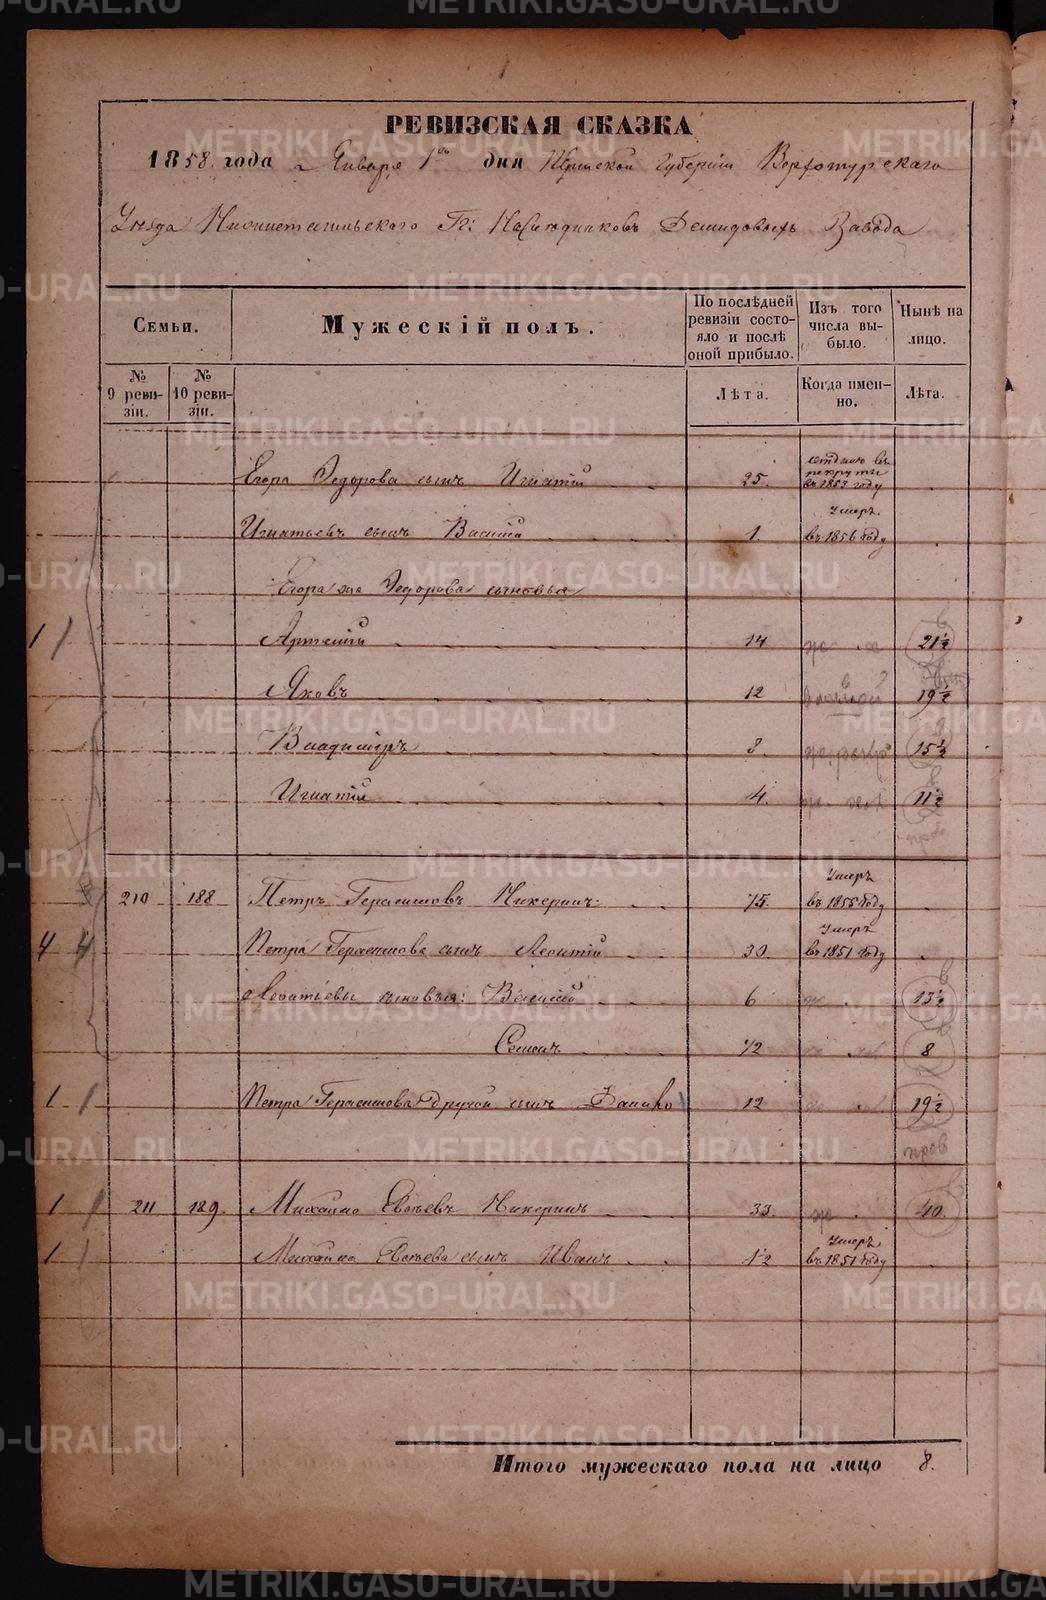 РЕВИЗСКАЯ СКАЗКА
1858 года Января 1го дня Пермской Губернии Верхотурскаго
Уезда Нижнетагильского Гг: Наследниковъ Демидовыхъ Завода
Семьи.
Мужескій полъ.
По послѣдней ревизіи состояло и послѣ оной прибыло.
Изъ того числа выбыло.
Нынѣ на лицо.
№ 9 ревизіи.
№ 10 ревизіи.
Лѣта.
Когда именно.
Лѣта.
Егора Федорова сынъ Игнатій 25. отданъ въ рекруты въ 1853 году
Игнатьевъ сынъ Василій 1. Умеръ въ 1856 году
Егора же Федорова сыновья
1 Артемій 14 21½
Яковъ 12 19½
Владимиръ 8. 15½
Игнатій 4. 11½
210 188 Петръ Герасимовъ Чикеринъ 75. Умеръ въ 1855 году
4 4 Петра Герасимова сынъ Леонтій 30. Умеръ въ 1851 году
Леонтьевы сыновья: Василій 6 13½
Семенъ ½ 8
1 1 Петра Герасимова другой сынъ Данило 12 19½
пров
1 1 211 189. Михайло Евсѣевъ Чикеринъ 33. 40.
1 1 Михайла Евсѣева сынъ Иванъ ½ Умеръ въ 1851 году
Итого мужескаго пола на лицо 8.
METRIKI.GASO-URAL.RU